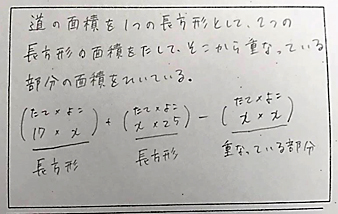 道の面積を1つの長方形として、2つの
長方形の面積をたして、そこから重なっている
部分の面積をひいている。
(たて×よこ) + (たて×よこ) - (たて×よこ)
(17 × x) + (x × 25) - (x × x)
長方形 長方形 重なっている部分